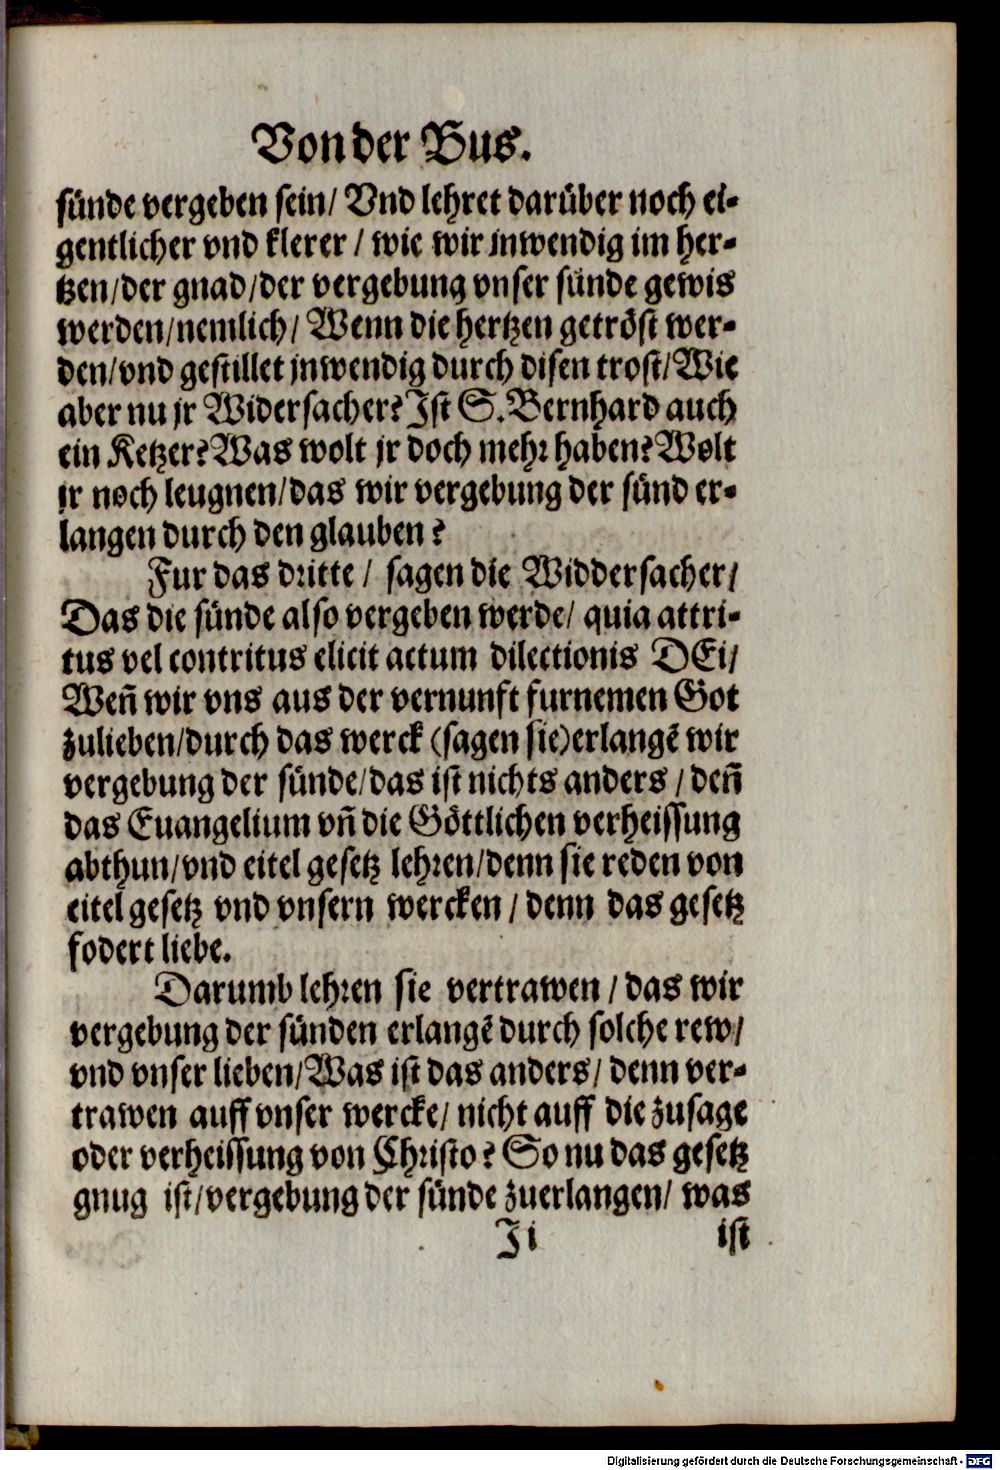 Von der Bus.
sünde vergeben sein/ Vnd lehret darüber noch ei-
gentlicher vnd klerer / wie wir inwendig im her-
tzen/der gnad/der vergebung vnser sünde gewis
werden/nemlich/ Wenn die hertzen getröst wer-
den/vnd gestillet jnwendig durch disen trost/Wie
aber nu jr Widersacher? Ist S. Bernhard auch
ein Ketzer? Was wolt jr doch mehr haben? Wolt
jr noch leugnen/das wir vergebung der sünd er-
langen durch den glauben?
Fur das dritte / sagen die Widdersacher/
Das die sünde also vergeben werde/ quia attri-
tus vel contritus elicit actum dilectionis DEi/
Weñ wir vns aus der vernunft furnemen Got
zulieben/durch das werck (sagen sie) erlangẽ wir
vergebung der sünde/das ist nichts anders / deñ
das Euangelium vñ die Göttlichen verheissung
abthun/vnd eitel gesetz lehren/denn sie reden von
eitel gesetz vnd vnsern wercken / denn das gesetz
fodert liebe.
Darumb lehren sie vertrawen / das wir
vergebung der sünden erlangẽ durch solche rew/
vnd vnser lieben/Was ist das anders/ denn ver-
trawen auff vnser wercke/ nicht auff die zusage
oder verheissung von Christo? So nu das gesetz
gnug ist/vergebung der sünde zuerlangen/ was
Ji ist
Digitalisierung gefördert durch die Deutsche Forschungsgemeinschaft - DFG